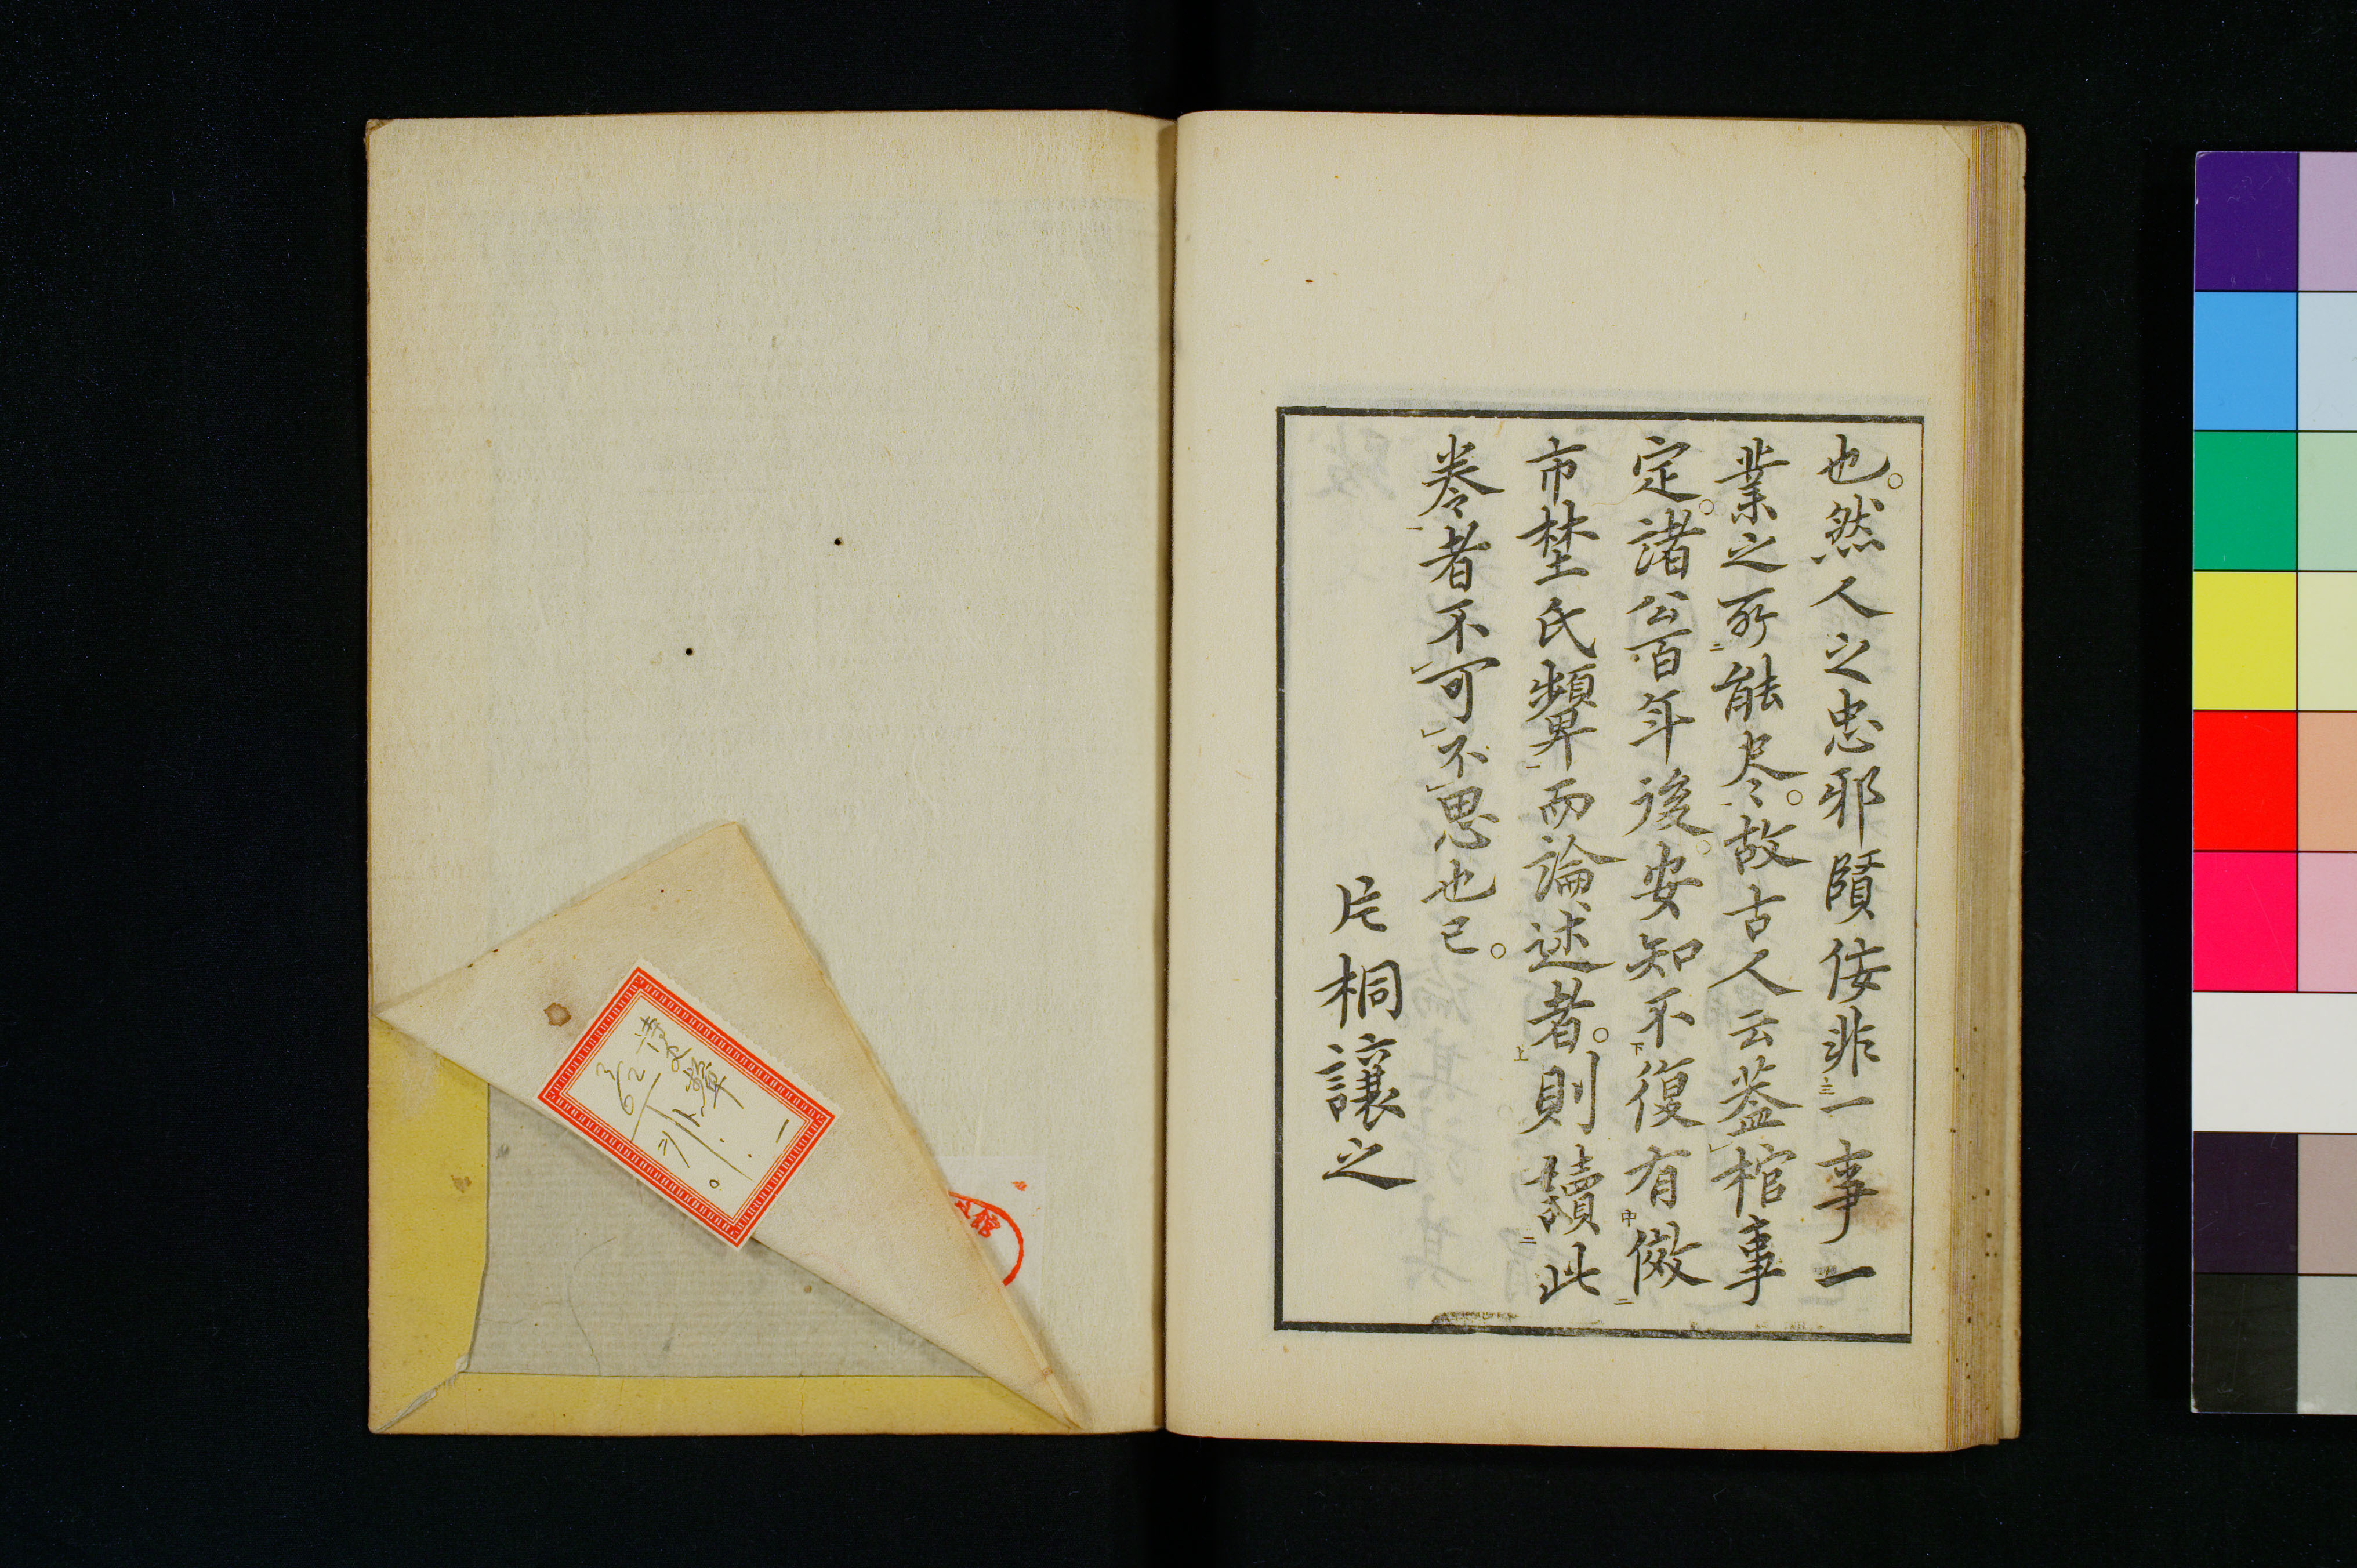 也。然人之忠邪賢佞非一事一
業之所能尽。故古人云蓋棺事
定。諸公百年後。安知不復有傚
市埜氏顰而論述者。則讀此
巻者不可不思也已。
片桐讓之